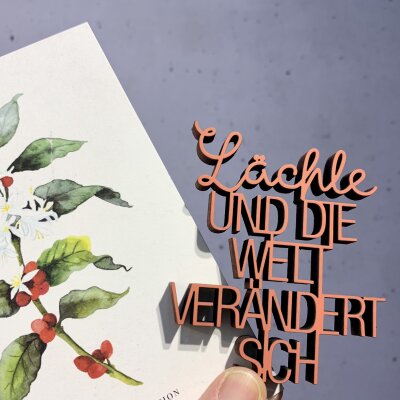 Lächle
UND DIE
WELT
VERÄNDERT
SICH